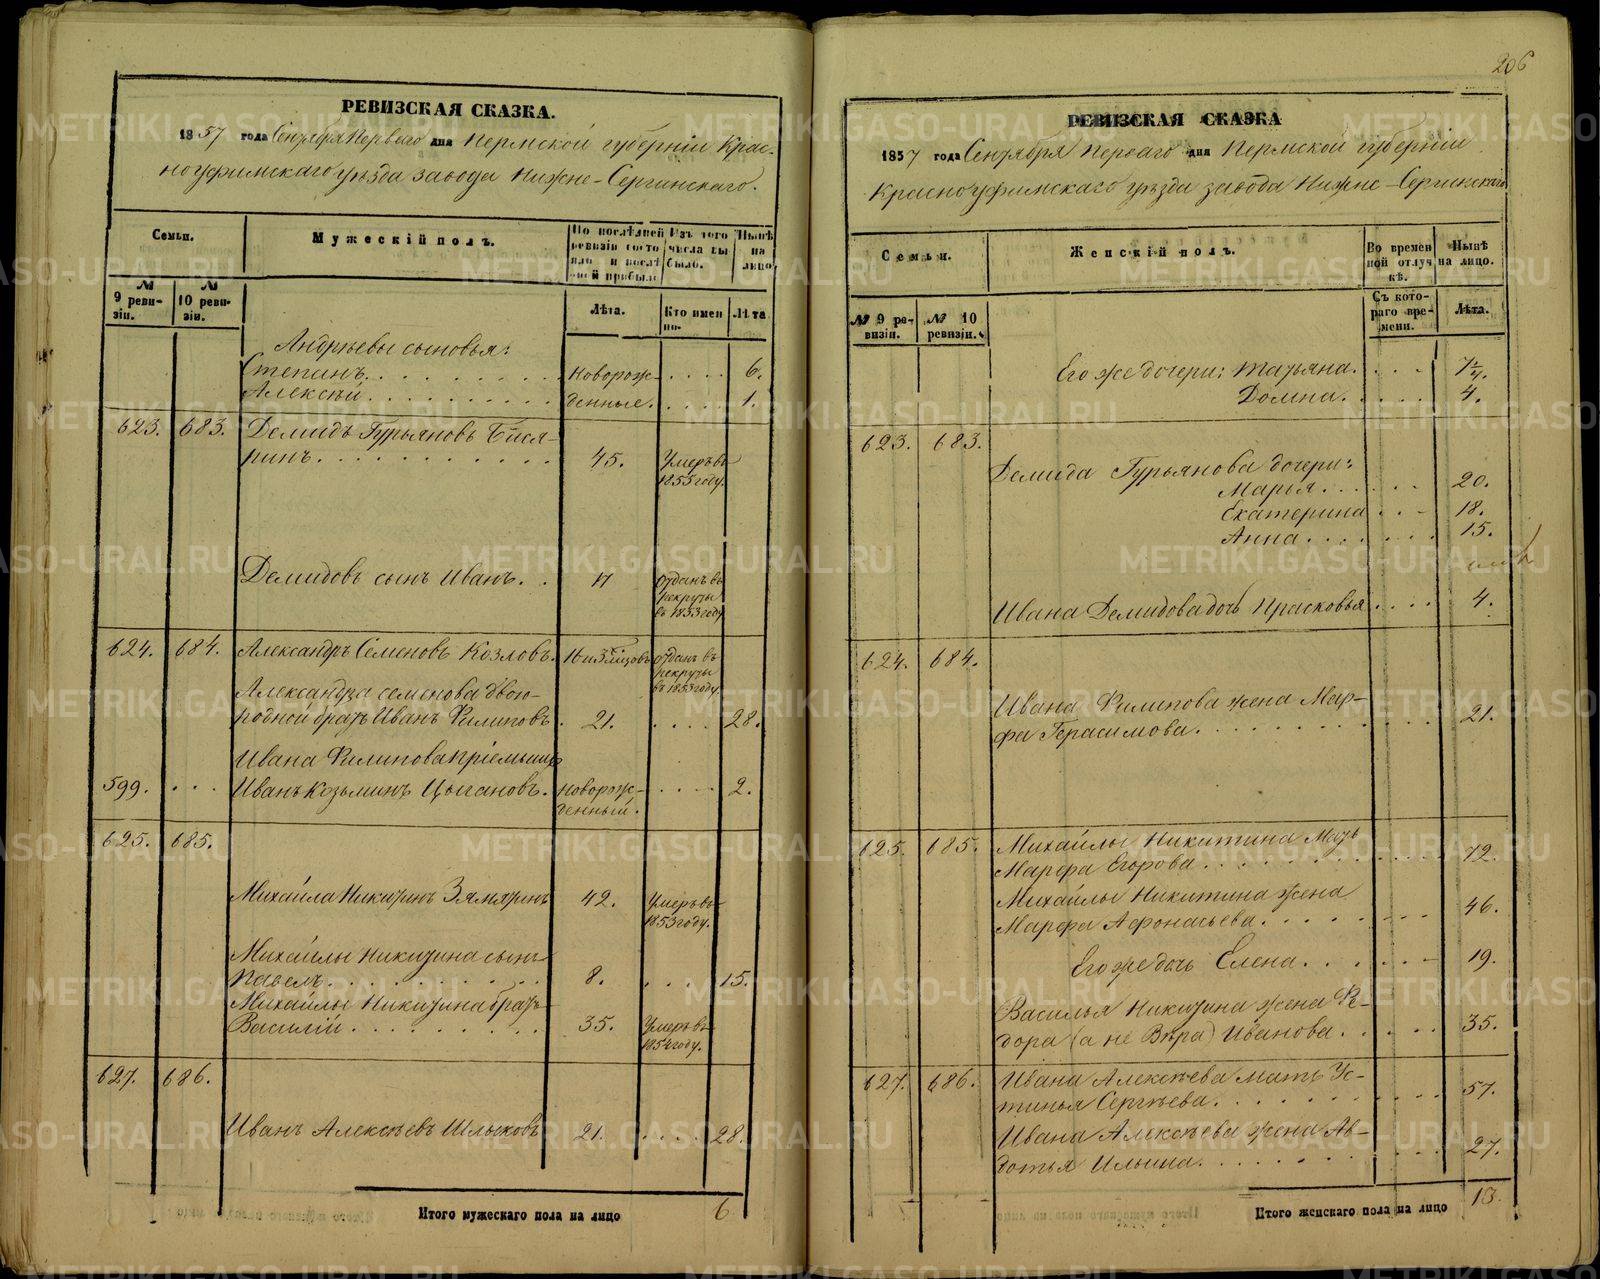 206
РЕВИЗСКАЯ СКАЗКА.
1857 года Сентября Перваго дня Пермской губерніи Крас-
ноуфимскаго уѣзда завода Нижне-Сергинскаго.
Семьи.
Мужескій полъ.
По послѣдней ревизіи состояло и послѣ оной прибыло
Изъ того числа выбыло.
Нынѣ на лицо
№ 9 ревизіи.
№ 10 ревизіи.
Лѣта.
Кто именно.
Лѣта
Андреевы сыновья:
Степанъ. новорож- 6.
Алексѣй. денные. 1.
623. 683. Демидъ Гурьяновъ
45. Умеръ въ 1855 году.
Демидовъ сынъ Иванъ. 17 отданъ въ рекруты въ 1853 году
624. 684. Александръ Семеновъ Козловъ. отданъ въ рекруты въ 1853 году.
Александра Семенова двою-
родной братъ Иванъ Филиповъ. 21. 28.
Ивана Филипова пріемышъ
599. Иванъ Козьминъ Цыгановъ. новорож- 2.
денный.
625. 685.
Михайла Никитинъ Замятинъ 42. Умеръ въ 1853 году.
Михайлы Никитина сынъ
Павелъ. 8. 15.
Михайлы Никитина братъ
Василій. 35. Умеръ въ 1854 году.
627. 686.
Иванъ Алексѣевъ Шлыковъ 21. 28.
Итого мужескаго пола на лицо 6
РЕВИЗСКАЯ СКАЗКА
1857 года Сентября Перваго дня Пермской губерніи
Красноуфимскаго уѣзда завода Нижне-Сергинскаго
Семьи.
Женскій полъ.
Во временной отлучкѣ.
Нынѣ на лицо.
№ 9 ревизіи.
№ 10 ревизіи.
Съ котораго времени.
Лѣта.
Его же дочери: Татьяна.
Домна. 4.
623. 683.
Демида Гурьянова дочери:
Марья. 20.
Екатерина 18.
Анна. 15.
Ивана Демидова дочь Прасковья 4.
624. 684.
Ивана Филипова жена Мар-
фа Герасимова. 21.
625. 685. Михайлы Никитина Мать
Марфа Егорова. 72.
Михайлы Никитина жена
Марфа Афонасьева. 46.
Его же дочь Елена. 19.
Василья Никитина жена Ѳе-
дора (а не Вѣра) Иванова. 35.
627. 686. Ивана Алексѣева мать Ус-
тинья Сергѣева. 57.
Ивана Алексѣева жена Ав-
дотья Ильина. 27.
Итого женскаго пола на лицо 13.
METRIKI.GASO-URAL.RU